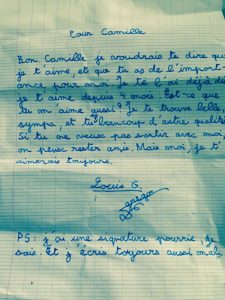 Pour Camille
Bon, Camille je voudrais te dire que
je t'aime, et que tu as de l'import-
ance pour moi. Je te l'ai déjà dit
je t'aime depuis 4 mois. Est-ce que
tu m'aime aussi? Je te trouve belle,
sympa, et ta beaucoup d'autre qualité.
Si tu ne veux pas sortir avec moi,
on peux rester amis. Mais moi, je t'
aimerais toujours.
Louis G.
PS: j'ai une signature pourrie, je
sais. Et j'écris toujours aussi mal,